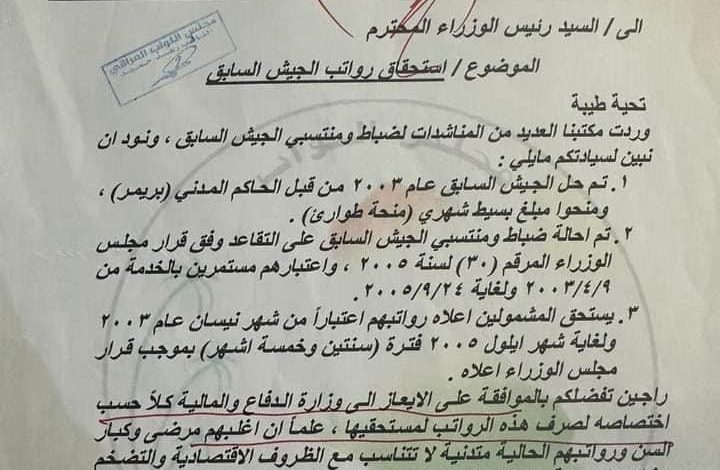 مجلس النواب العراقي
الى / السيد رئيس الوزراء المحترم
الموضوع / استحقاق رواتب الجيش السابق
تحية طيبة
وردت مكتبنا العديد من المناشدات لضباط ومنتسبي الجيش السابق ، ونود ان
نبين لسيادتكم مايلي :
١. تم حل الجيش السابق عام ٢٠٠٣ من قبل الحاكم المدني (بريمر) ،
ومنحوا مبلغ بسيط شهري (منحة طوارئ) .
٢. تم احالة ضباط ومنتسبي الجيش السابق على التقاعد وفق قرار مجلس
الوزراء المرقم (٣٠) لسنة ٢٠٠٥ ، واعتبارهم مستمرين بالخدمة من
٢٠٠٣/٤/٩ ولغاية ٢٠٠٥/٩/٢٤.
٣. يستحق المشمولين اعلاه رواتبهم اعتباراً من شهر نيسان عام ٢٠٠٣
ولغاية شهر ايلول ٢٠٠٥ فترة (سنتين وخمسة اشهر) بموجب قرار
مجلس الوزراء اعلاه .
راجين تفضلكم بالموافقة على الايعاز الى وزارة الدفاع والمالية كلاً حسب
اختصاصه لصرف هذه الرواتب لمستحقيها ، علماً ان اغلبهم مرضى وكبار
السن ورواتبهم الحالية متدنية لا تتناسب مع الظروف الاقتصادية والتضخم